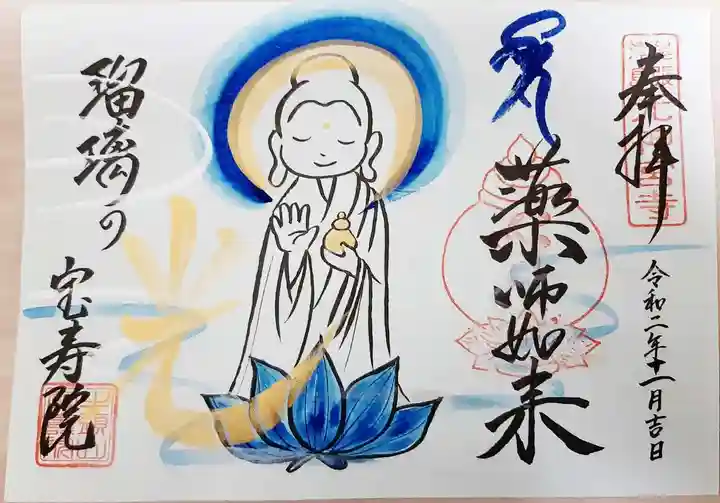 奉拝
令和二年十一月吉日
薬師如来
瑠璃の
光
宝寿院